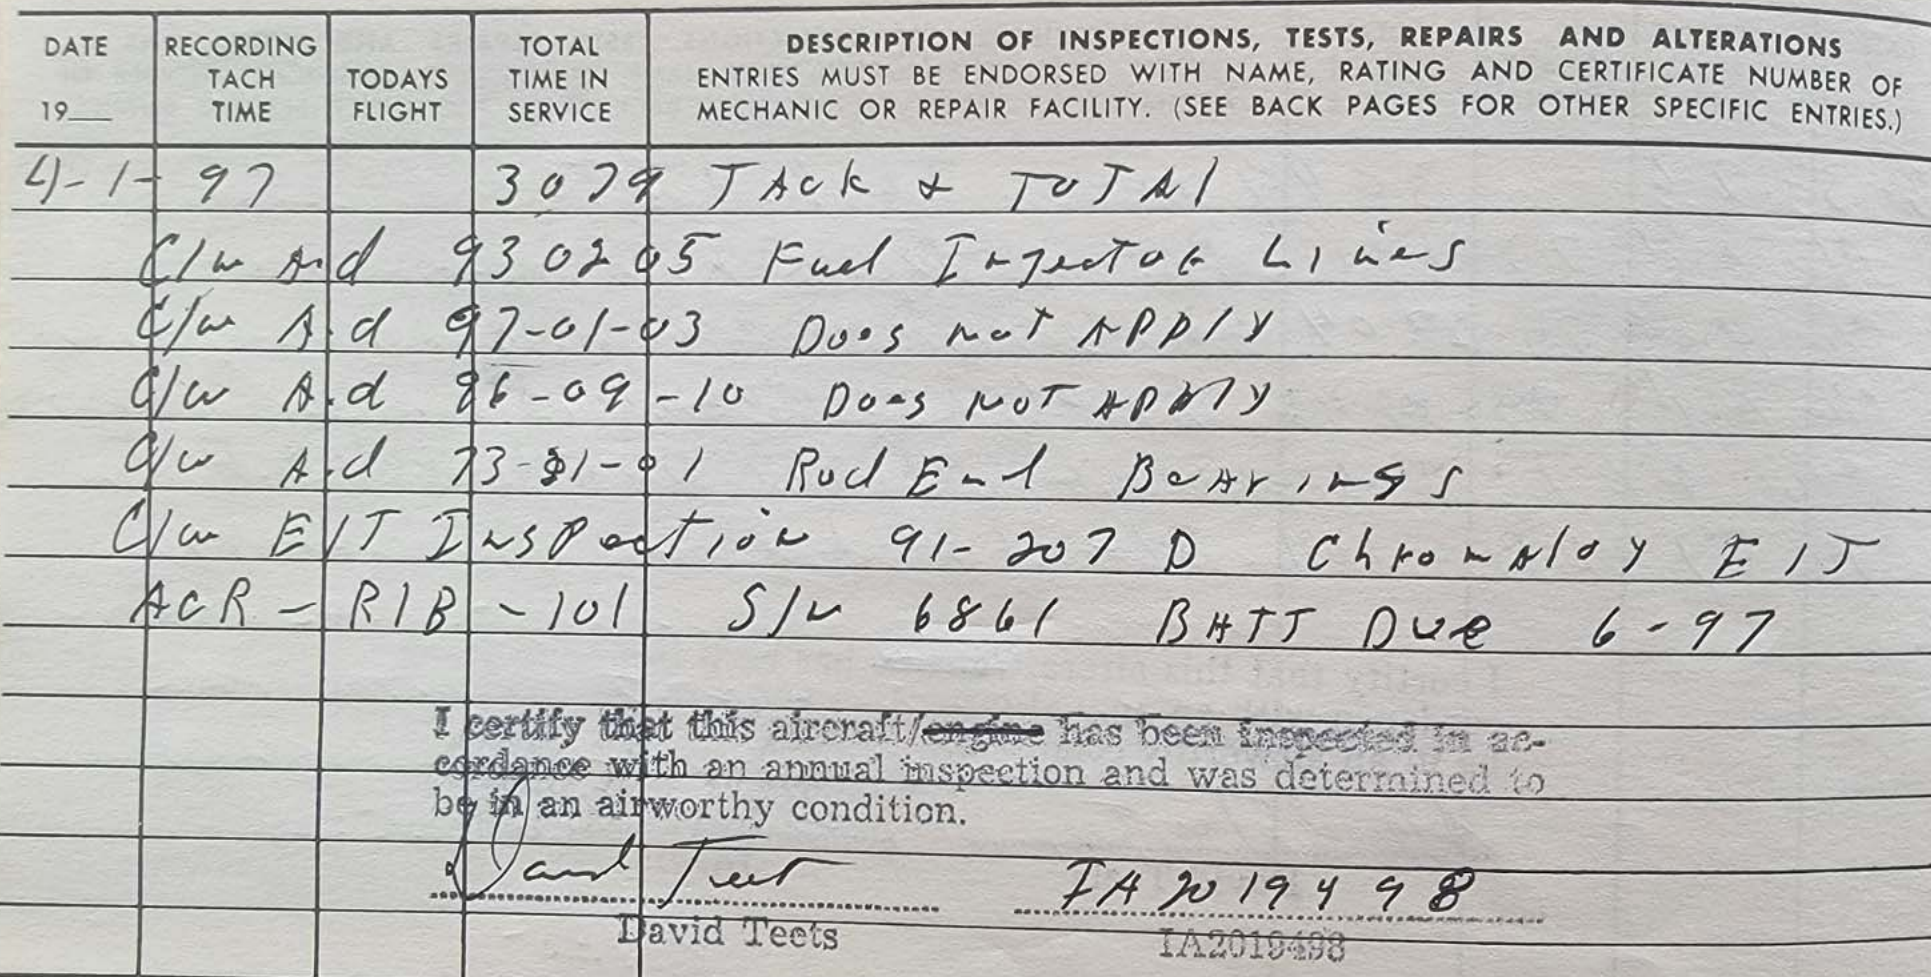 DATE 19__ RECORDING TACH TIME TODAYS FLIGHT TOTAL TIME IN SERVICE DESCRIPTION OF INSPECTIONS, TESTS, REPAIRS AND ALTERATIONS
ENTRIES MUST BE ENDORSED WITH NAME, RATING AND CERTIFICATE NUMBER OF
MECHANIC OR REPAIR FACILITY. (SEE BACK PAGES FOR OTHER SPECIFIC ENTRIES.)
4-1-97 3079 TAck & TOTAl
C/w A.d 930205 Fuel Injector Lines
C/w A.d 97-01-03 Does not APPly
C/w A.d 96-09-10 Does NOT APPly
C/w A.d 73-21-01 Rod End Bearings
C/w E/T InsPection 91-207 D Chromaloy E/T
ACR-RIB-101 S/N 6861 BATT Due 6-97
I certify that this aircraft/engine has been inspected in ac-
cordance with an annual inspection and was determined to
be in an airworthy condition.
David Teets IA2019498
David Teets IA2019498